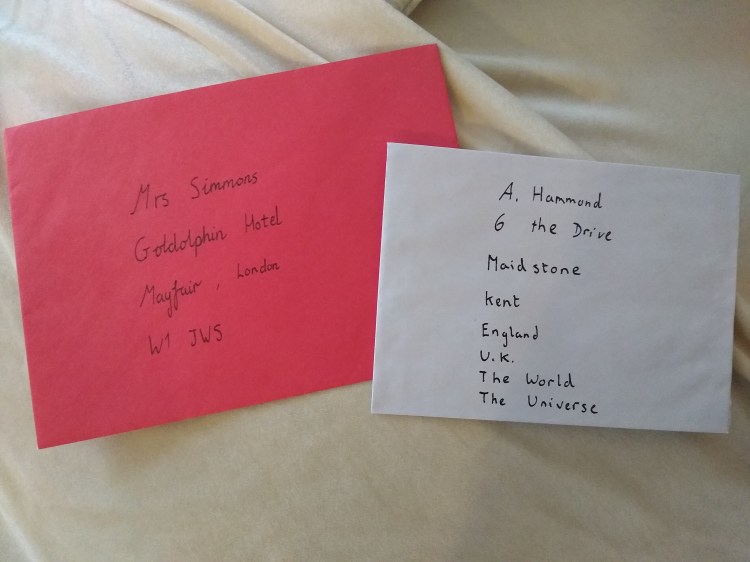 Mrs Simmons
Goldolphin Hotel
Mayfair, London
W1 JW5
A. Hammond
6 the Drive
Maidstone
Kent
England
U.K.
The World
The Universe